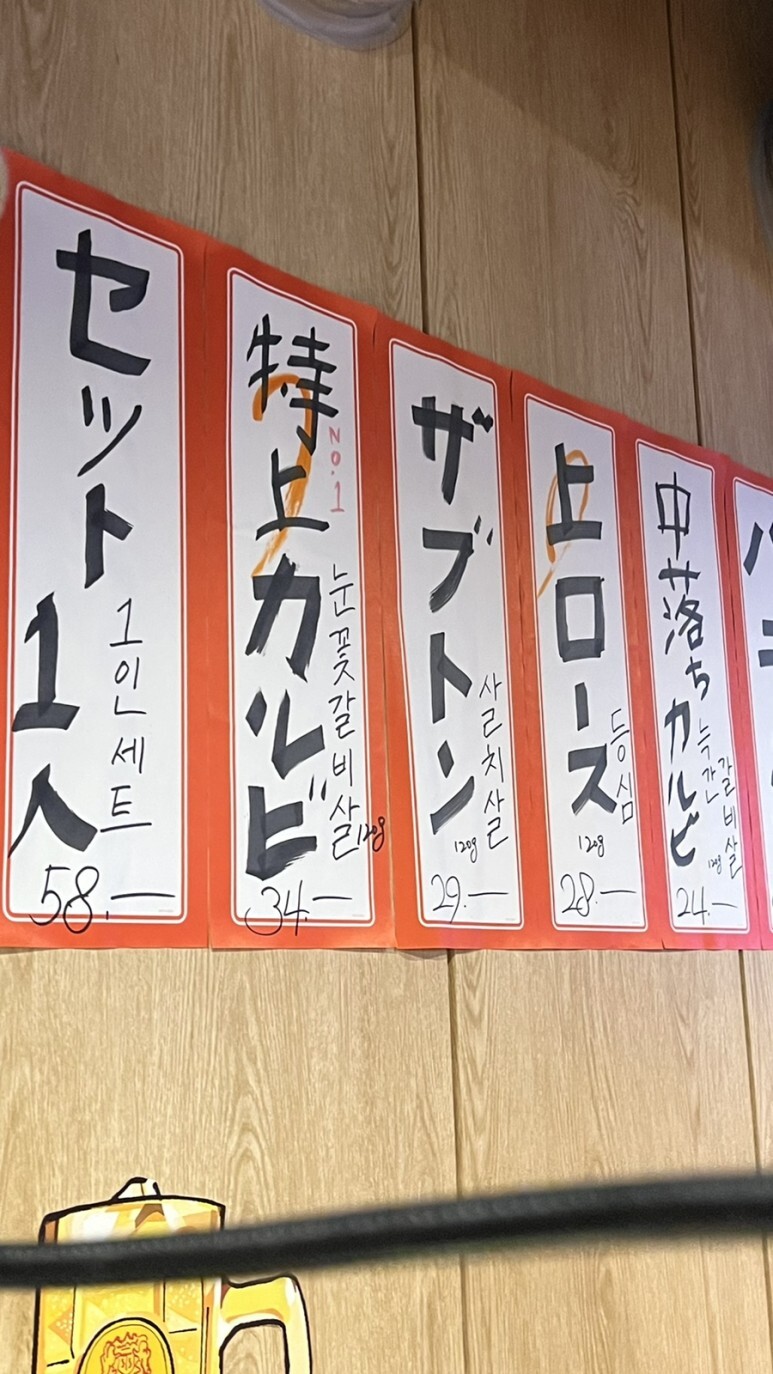 セット
1人
1인세트
58.—
特上カルビ
NO.1
눈꽃갈비살
120g
34—
ザブトン
살치살
120g
29.—
上ロース
등심
120g
28.—
中落ち
カルビ
늑간
갈비살
120g
24.—